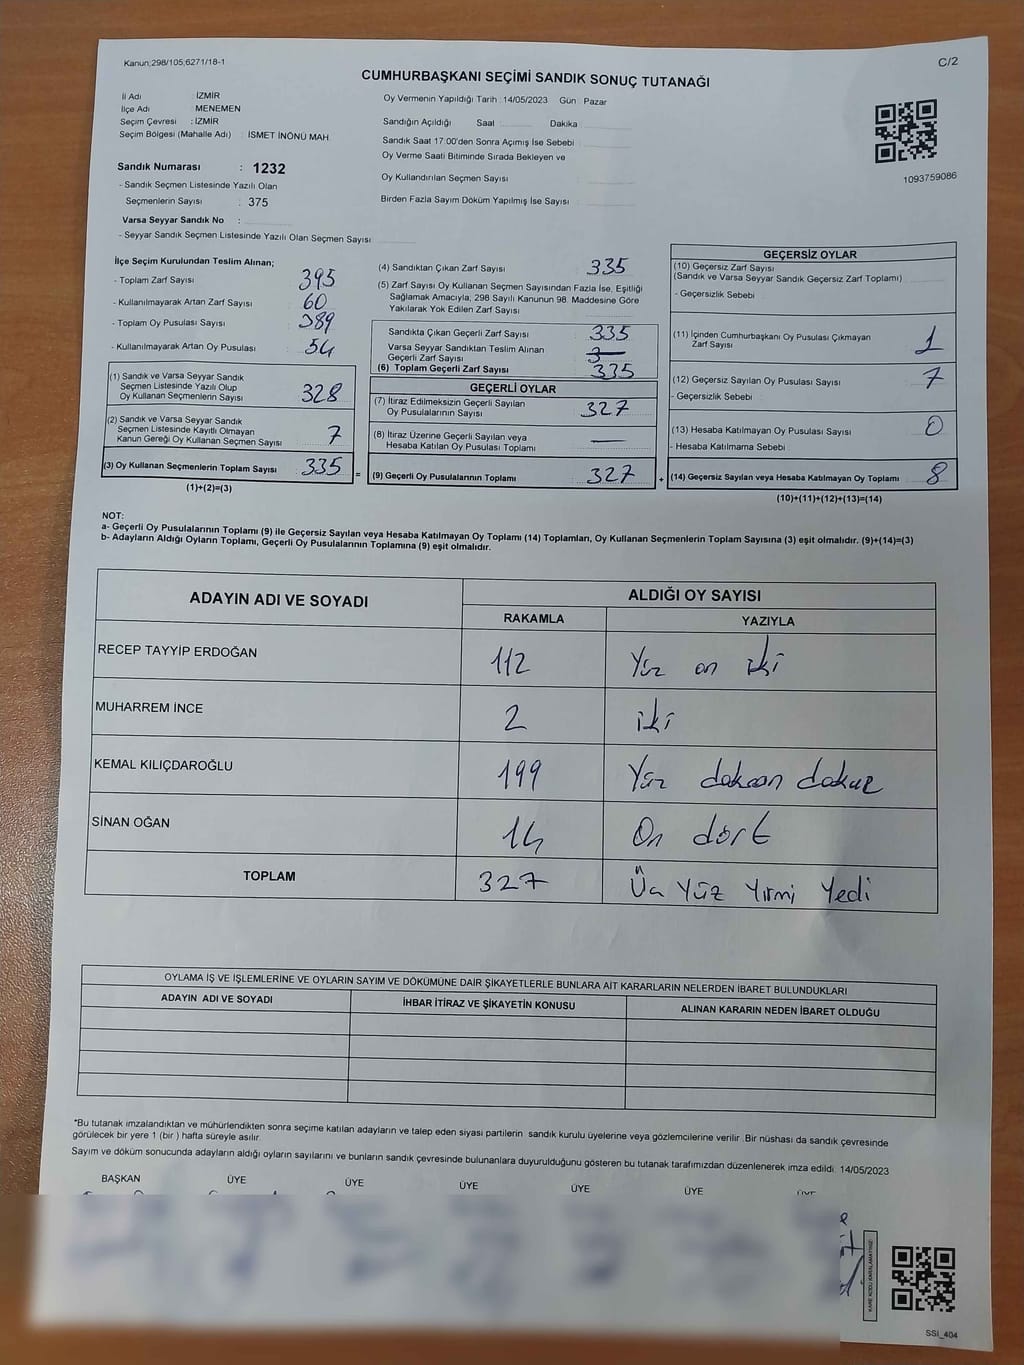 Kanun;298/105;6271/18-1
C/2
CUMHURBAŞKANI SEÇİMİ SANDIK SONUÇ TUTANAĞI
İl Adı : İZMİR
İlçe Adı : MENEMEN
Seçim Çevresi : İZMİR
Seçim Bölgesi (Mahalle Adı) : İSMET İNÖNÜ MAH.
Sandık Numarası : 1232
- Sandık Seçmen Listesinde Yazılı Olan
Seçmenlerin Sayısı : 375
Varsa Seyyar Sandık No :
- Seyyar Sandık Seçmen Listesinde Yazılı Olan Seçmen Sayısı
Oy Vermenin Yapıldığı Tarih : 14/05/2023 Gün : Pazar
Sandığın Açıldığı Saat Dakika
Sandık Saat 17:00'den Sonra Açımış İse Sebebi
Oy Verme Saati Bitiminde Sırada Bekleyen ve
Oy Kullandırılan Seçmen Sayısı
Birden Fazla Sayım Döküm Yapılmış İse Sayısı
1093759086
İlçe Seçim Kurulundan Teslim Alınan;
- Toplam Zarf Sayısı 395
- Kullanılmayarak Artan Zarf Sayısı 60
- Toplam Oy Pusulası Sayısı 389
- Kullanılmayarak Artan Oy Pusulası 54
(1) Sandık ve Varsa Seyyar Sandık
Seçmen Listesinde Yazılı Olup
Oy Kullanan Seçmenlerin Sayısı 328
(2) Sandık ve Varsa Seyyar Sandık
Seçmen Listesinde Kayıtlı Olmayan
Kanun Gereği Oy Kullanan Seçmen Sayısı 7
(3) Oy Kullanan Seçmenlerin Toplam Sayısı 335
(1)+(2)=(3)
(4) Sandıktan Çıkan Zarf Sayısı 335
(5) Zarf Sayısı Oy Kullanan Seçmen Sayısından Fazla İse, Eşitliği
Sağlamak Amacıyla; 298 Sayılı Kanunun 98. Maddesine Göre
Yakılarak Yok Edilen Zarf Sayısı
Sandıkta Çıkan Geçerli Zarf Sayısı 335
Varsa Seyyar Sandıktan Teslim Alınan
Geçerli Zarf Sayısı
(6) Toplam Geçerli Zarf Sayısı 335
GEÇERLİ OYLAR
(7) İtiraz Edilmeksizin Geçerli Sayılan
Oy Pusulalarının Sayısı 327
(8) İtiraz Üzerine Geçerli Sayılan veya
Hesaba Katılan Oy Pusulası Toplamı —
= (9) Geçerli Oy Pusulalarının Toplamı 327
GEÇERSİZ OYLAR
(10) Geçersiz Zarf Sayısı
(Sandık ve Varsa Seyyar Sandık Geçersiz Zarf Toplamı)
- Geçersizlik Sebebi
(11) İçinden Cumhurbaşkanı Oy Pusulası Çıkmayan
Zarf Sayısı 1
(12) Geçersiz Sayılan Oy Pusulası Sayısı 7
- Geçersizlik Sebebi
(13) Hesaba Katılmayan Oy Pusulası Sayısı 0
- Hesaba Katılmama Sebebi
+ (14) Geçersiz Sayılan veya Hesaba Katılmayan Oy Toplamı 8
(10)+(11)+(12)+(13)=(14)
NOT:
a- Geçerli Oy Pusulalarının Toplamı (9) ile Geçersiz Sayılan veya Hesaba Katılmayan Oy Toplamı (14) Toplamları, Oy Kullanan Seçmenlerin Toplam Sayısına (3) eşit olmalıdır. (9)+(14)=(3)
b- Adayların Aldığı Oyların Toplamı, Geçerli Oy Pusulalarının Toplamına (9) eşit olmalıdır.
ADAYIN ADI VE SOYADI
ALDIĞI OY SAYISI
RAKAMLA YAZIYLA
RECEP TAYYİP ERDOĞAN 112 Yüz on iki
MUHARREM İNCE 2 iki
KEMAL KILIÇDAROĞLU 199 Yüz doksan dokuz
SİNAN OĞAN 14 On dört
TOPLAM 327 Üç Yüz Yirmi Yedi
OYLAMA İŞ VE İŞLEMLERİNE VE OYLARIN SAYIM VE DÖKÜMÜNE DAİR ŞİKAYETLERLE BUNLARA AİT KARARLARIN NELERDEN İBARET BULUNDUKLARI
ADAYIN ADI VE SOYADI İHBAR İTİRAZ VE ŞİKAYETİN KONUSU ALINAN KARARIN NEDEN İBARET OLDUĞU
*Bu tutanak imzalandıktan ve mühürlendikten sonra seçime katılan adayların ve talep eden siyasi partilerin sandık kurulu üyelerine veya gözlemcilerine verilir .Bir nüshası da sandık çevresinde
görülecek bir yere 1 (bir ) hafta süreyle asılır.
Sayım ve döküm sonucunda adayların aldığı oyların sayılarını ve bunların sandık çevresinde bulunanlara duyurulduğunu gösteren bu tutanak tarafımızdan düzenlenerek imza edildi. 14/05/2023
BAŞKAN ÜYE ÜYE ÜYE ÜYE ÜYE ÜYE
KARE KODU KARALAMAYINIZ!
SSI_404